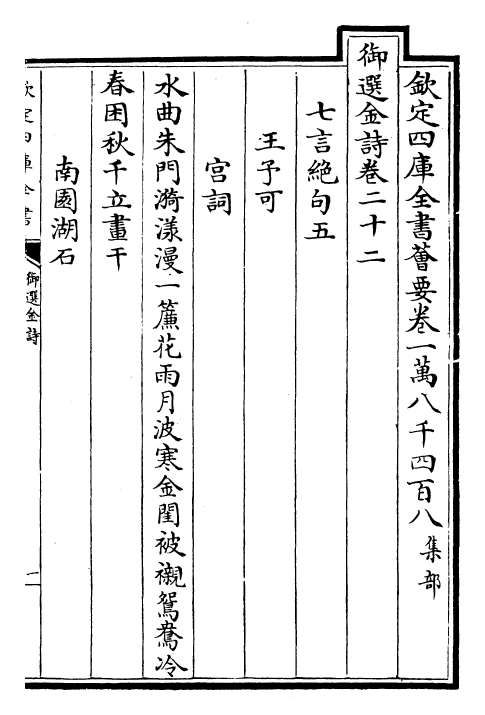 欽定四庫全書薈要卷一萬八千四百八集部
御選金詩卷二十二
七言絶句五
王予可
宫詞
水曲朱門漪漾漫一簾花雨月波寒金閨被襯鴛鴦冷
春困秋千立畫干
南園湖石
欽定四庫全書
御選金詩
一